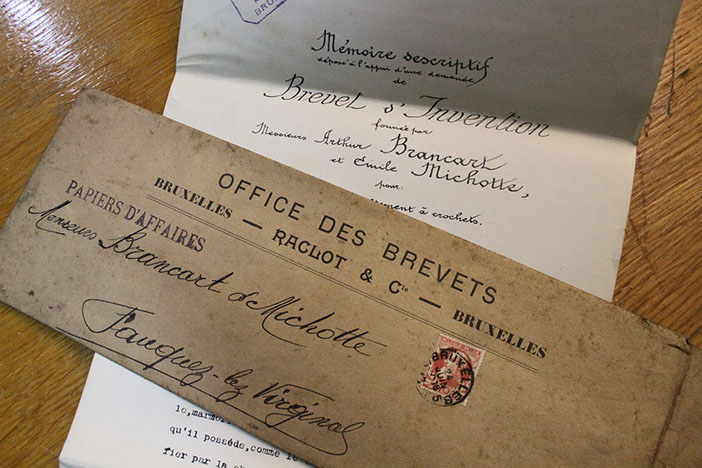 BRU
Mémoire descriptif
déposé à l'appui d'une demande
de
Brevet d'Invention
formée par
Messieurs Arthur Brancart
et Emile Michotte,
pour:
ment à crochets.
OFFICE DES BREVETS
BRUXELLES — RACLOT & Cie — BRUXELLES
PAPIERS D'AFFAIRES
Messieurs Brancart & Michotte
Fauquez-lez Virginal
BRUXELLES
le, marm
qu'il possède, comme le
fier par la